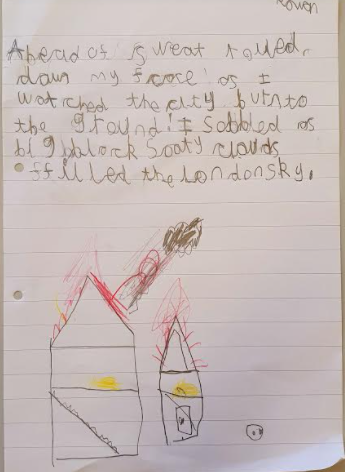 Rowen
A head of is weat roued.
down my frace! as I
watched the city burn to
the ground! I sobbled as
big black Sooty clouds
filled the london sky.